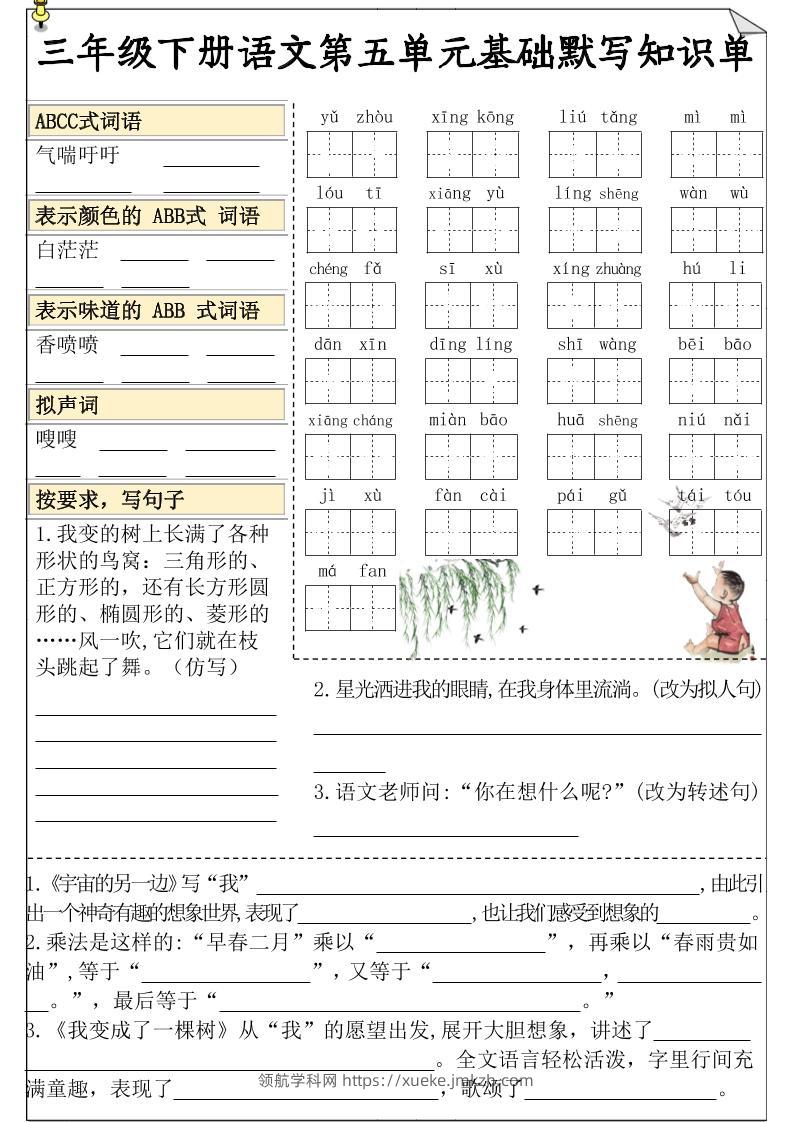 三年级下册语文第五单元基础默写知识单
ABCC式词语
气喘吁吁
表示颜色的 ABB式 词语
白茫茫
表示味道的 ABB 式词语
香喷喷
拟声词
嗖嗖
按要求，写句子
1.我变的树上长满了各种
形状的鸟窝：三角形的、
正方形的，还有长方形圆
形的、椭圆形的、菱形的
……风一吹,它们就在枝
头跳起了舞。（仿写）
yǔ zhòu xīng kōng liú tǎng mì mì
lóu tī xiāng yù líng shēng wàn wù
chéng fǎ sī xù xíng zhuàng hú li
dān xīn dīng líng shī wàng bēi bāo
xiāng cháng miàn bāo huā shēng niú nǎi
jì xù fàn cài pái gǔ tái tóu
má fan
2.星光洒进我的眼睛,在我身体里流淌。(改为拟人句)
3.语文老师问:“你在想什么呢?”(改为转述句)
1.《宇宙的另一边》写“我”,由此引
出一个神奇有趣的想象世界,表现了,也让我们感受到想象的。
2.乘法是这样的:“早春二月”乘以“”，再乘以“春雨贵如
油”,等于“”，又等于“,
。”，最后等于“。”
3.《我变成了一棵树》从“我”的愿望出发,展开大胆想象，讲述了
。全文语言轻松活泼，字里行间充
满童趣，表现了,歌颂了。
领航学科网 https://xueke.jmkzb.com